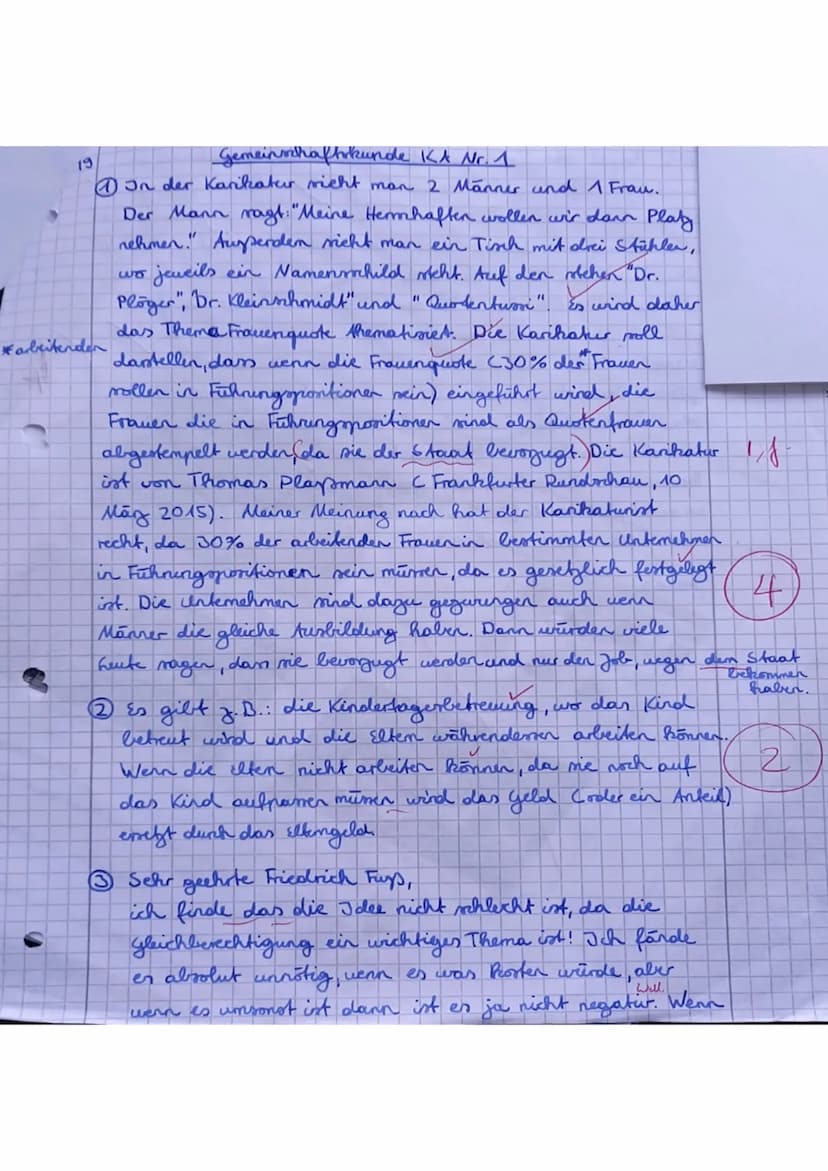 19
Gemeinschaftskunde KA Nr. 1
① In der Karikatur sieht man 2 Männer und 1 Frau.
Der Mann sagt: "Meine Herrschaften wollen wir dann Platz
nehmen." Außerdem sieht man ein Tisch mit drei Stühlen,
wo jeweils ein Namensschild steht. Auf den stehen "Dr.
Plöger", "Dr. Kleinschmidt" und "Quotentussi". Es wird daher
das Thema Frauenquote thematisiert. Die Karikatur soll
*arbeitenden
darstellen, dass wenn die Frauenquote (30% der* Frauen
sollen in Führungspositionen sein) eingeführt wird, die
Frauen die in Führungspositionen sind als Quotenfrauen
abgestempelt werden (da sie der Staat bevorzugt.) Die Karikatur
ist von Thomas Plaßmann (Frankfurter Rundschau, 10
März 2015). Meiner Meinung nach hat der Karikaturist
recht, da 30% der arbeitenden Frauen in bestimmten Unternehmen
in Führungspositionen sein müssen, da es gesetzlich festgelegt
4
ist. Die Unternehmen sind dazu gezwungen auch wenn
Männer die gleiche Ausbildung haben. Dann würden viele
heute sagen, dass sie bevorzugt werden und nur den Job, wegen dem Staat
bekommen
haben.
② Es gibt z.B.: die Kindertagesbetreuung, wo das Kind
betreut wird und die Eltern währenddessen arbeiten können.
2
Wenn die Eltern nicht arbeiten können, da sie noch auf
das Kind aufpassen müssen wird das Geld (oder ein Anteil)
ersetzt durch das Elterngeld
③ Sehr geehrte Friedrich Fuß,
ich finde das die Idee nicht schlecht ist, da die
Gleichberechtigung ein wichtiges Thema ist! Ich fände
es absolut unnötig, wenn es was kosten würde, aber
wenn es umsonst ist dann ist es ja nicht negativ. Wenn